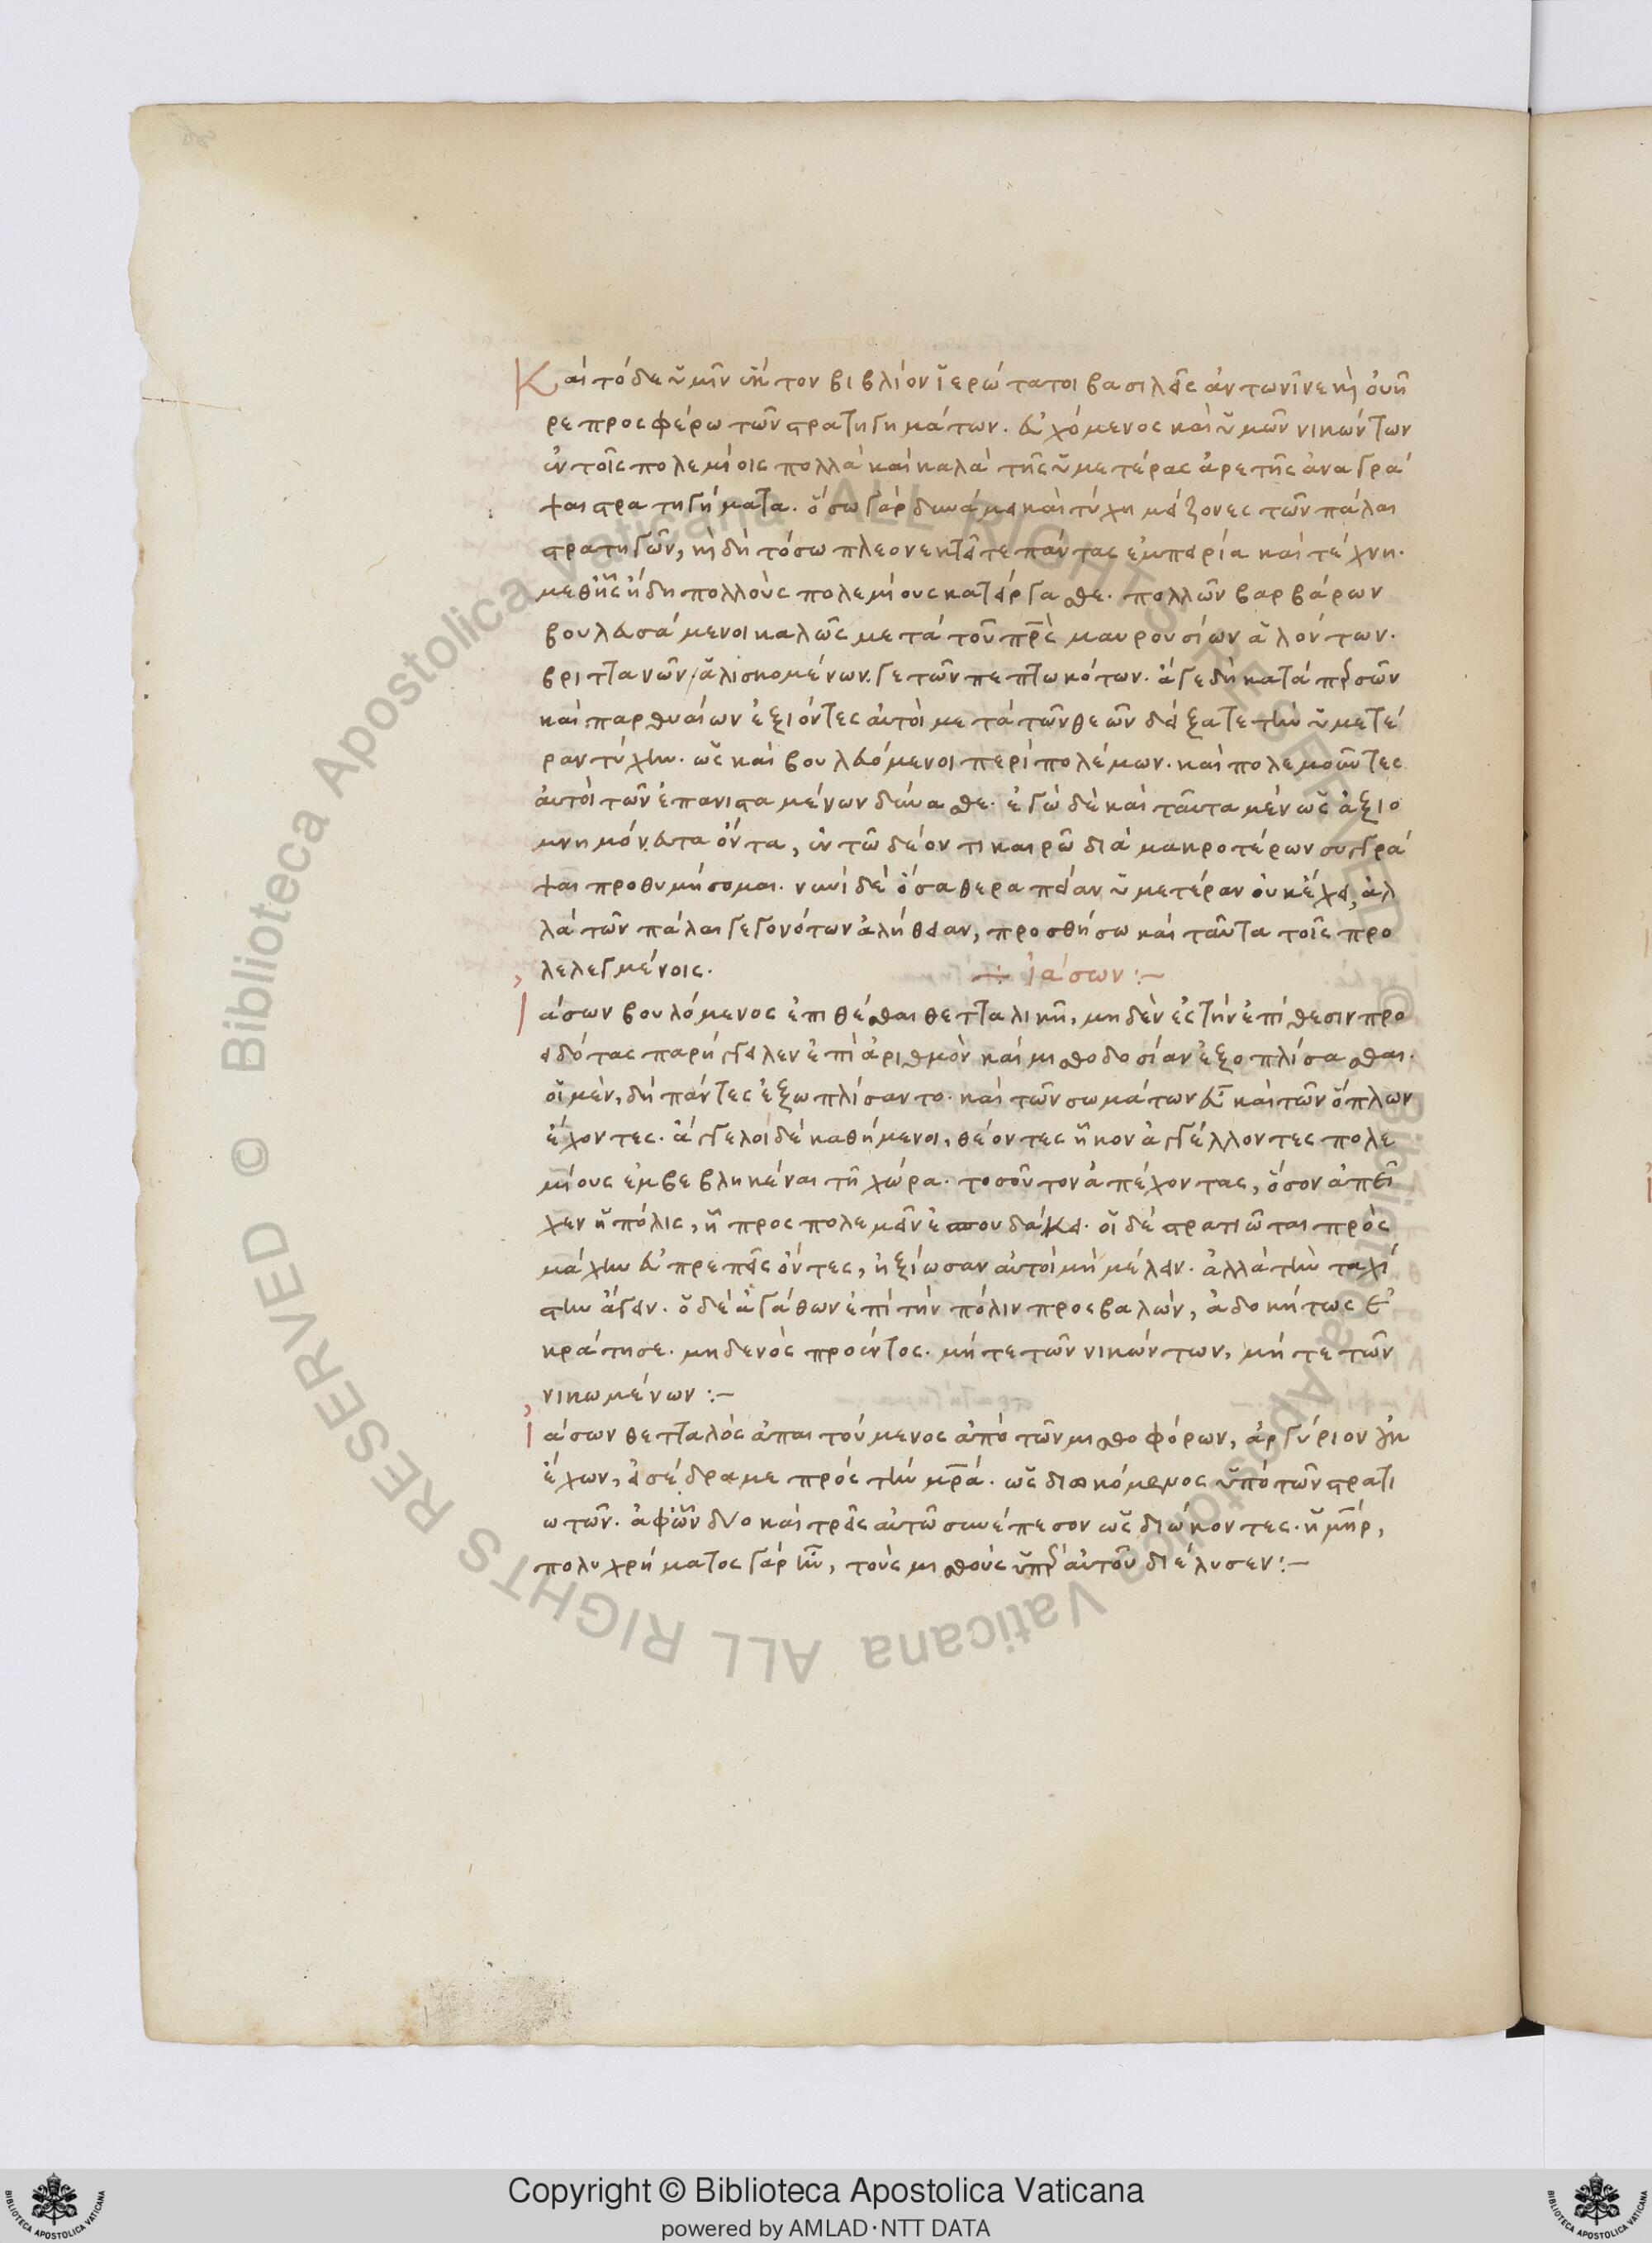 Καὶ τόδε ὑμῖν ἕκτον βιβλίον ἱερώτατοι βασιλεῖς ἀντωνῖνε κὶ ὀυῆ
ρε προσφέρω τῶν στρατηγημάτων. εὐχόμενος καὶ ὑμῶν νικώντων
ἐν τοῖς πολεμίοις πολλὰ καὶ καλὰ τῆς ὑμετέρας ἀρετῆς ἀναγρά
ψαι στρατηγήματα. ὅσω γὰρ δυνάμει καὶ τύχη μείζονες τῶν πάλαι
στρατηγῶν, κὶ δὴ τόσω πλεονεκτεῖτε πάντας ἐμπειρία καὶ τέχνη.
μεθῆς ἤδη πολλοὺς πολεμίους κατείργασθε. πολλῶν βαρβάρων
βουλευσάμενοι καλῶς μετὰ τοῦ πρς μαυρουσίων ἁλόντων.
βρι τανῶν ἁλισκομένων. γετῶν πεπτωκότων. ἄγε δὴ κατὰ περσῶν
καὶ παρθυαίων ἐξιόντες αὐτοὶ μετὰ τῶν θεῶν δείξατε τὴν ὑμετέ
ραν τύχην. ὡς καὶ βουλευόμενοι περὶ πολέμων. καὶ πολεμοῦντες
ἀυτοὶ τῶν ἐπανισταμένων δύνασθε. ἐγὼ δὲ καὶ ταῦτα μὲν ὡς ἀξιο
μνημόνευτα ὄντα, ἐν τῶ δέοντι καιρῶ διὰ μακροτέρων συγγρά
ψαι προθυμήσομαι. νυνὶ δὲ ὅσα θεραπείαν ὑμετέραν ὀυκ ἔχει, ἀλ
λὰ τῶν πάλαι γεγονότων ἀλήθειαν, προσθήσω καὶ ταῦτα τοῖς προ
λελεγμένοις. ἰάσων :-
Ἰάσων βουλόμενος ἐπιθέσθαι θετταλικῆ, μηδὲν ἐς τὴν ἐπίθεσιν προ
ειδότας παρήγγειλεν ἐπὶ ἀριθμὸν καὶ μισθοδοσίαν ἐξοπλίσασθαι.
οἱ μὲν, δὴ πάντες ἐξωπλίσαντο. καὶ τῶν σωμάτων εὖ καὶ τῶν ὅπλων
ἔχοντες. ἄγγελοι δὲ καθήμενοι, θέοντες ἧκον ἀγγέλλοντες πολε
μίους ἐμβεβληκέναι τῆ χώρα. τοσοῦτον ἀπέχοντας, ὅσον ἀπεῖ
χεν ἡ πόλις, ἧ προς πολεμεῖν ἐσπουδάκει. οἱ δὲ στρατιῶται πρὸς
μάχην εὐπρεπεῖς ὄντες, ἠξίωσαν αὐτοὶ μὴ μέλειν. ἀλλὰ τὴν ταχί
στην ἄγειν. ὁ δὲ ἀγάθων ἐπὶ τὴν πόλιν προσβαλὼν, ἀδοκήτως ἐ
κράτησε. μηδενὸς προέντος. μήτε τῶν νικώντων, μήτε τῶν
νικωμένων :-
Ἰάσων θετταλὸς ἀπαιτούμενος ἀπὸ τῶν μισθοφόρων, ἀργύριον
ἔχων, εἰσέδραμε πρὸς τὴν μρα. ὡς διωκόμενος ὑπὸ τῶν στρατι
ωτῶν. ἀφ ὧν δύο καὶ τρεῖς αὐτῶ συνέπεσον ὡς διώκοντες. ἡ μηρ,
πολυχρήματος γὰρ ἦν, τοὺς μισθοὺς ὑπὲρ αὐτοῦ διέλυσεν :-
© Biblioteca Apostolica Vaticana ALL RIGHTS RESERVED
© Biblioteca Apostolica Vaticana ALL RIGHTS RESERVED
Copyright © Biblioteca Apostolica Vaticana
powered by AMLAD·NTT DATA
BIBLIOTECA APOSTOLICA VATICANA
BIBLIOTECA APOSTOLICA VATICANA